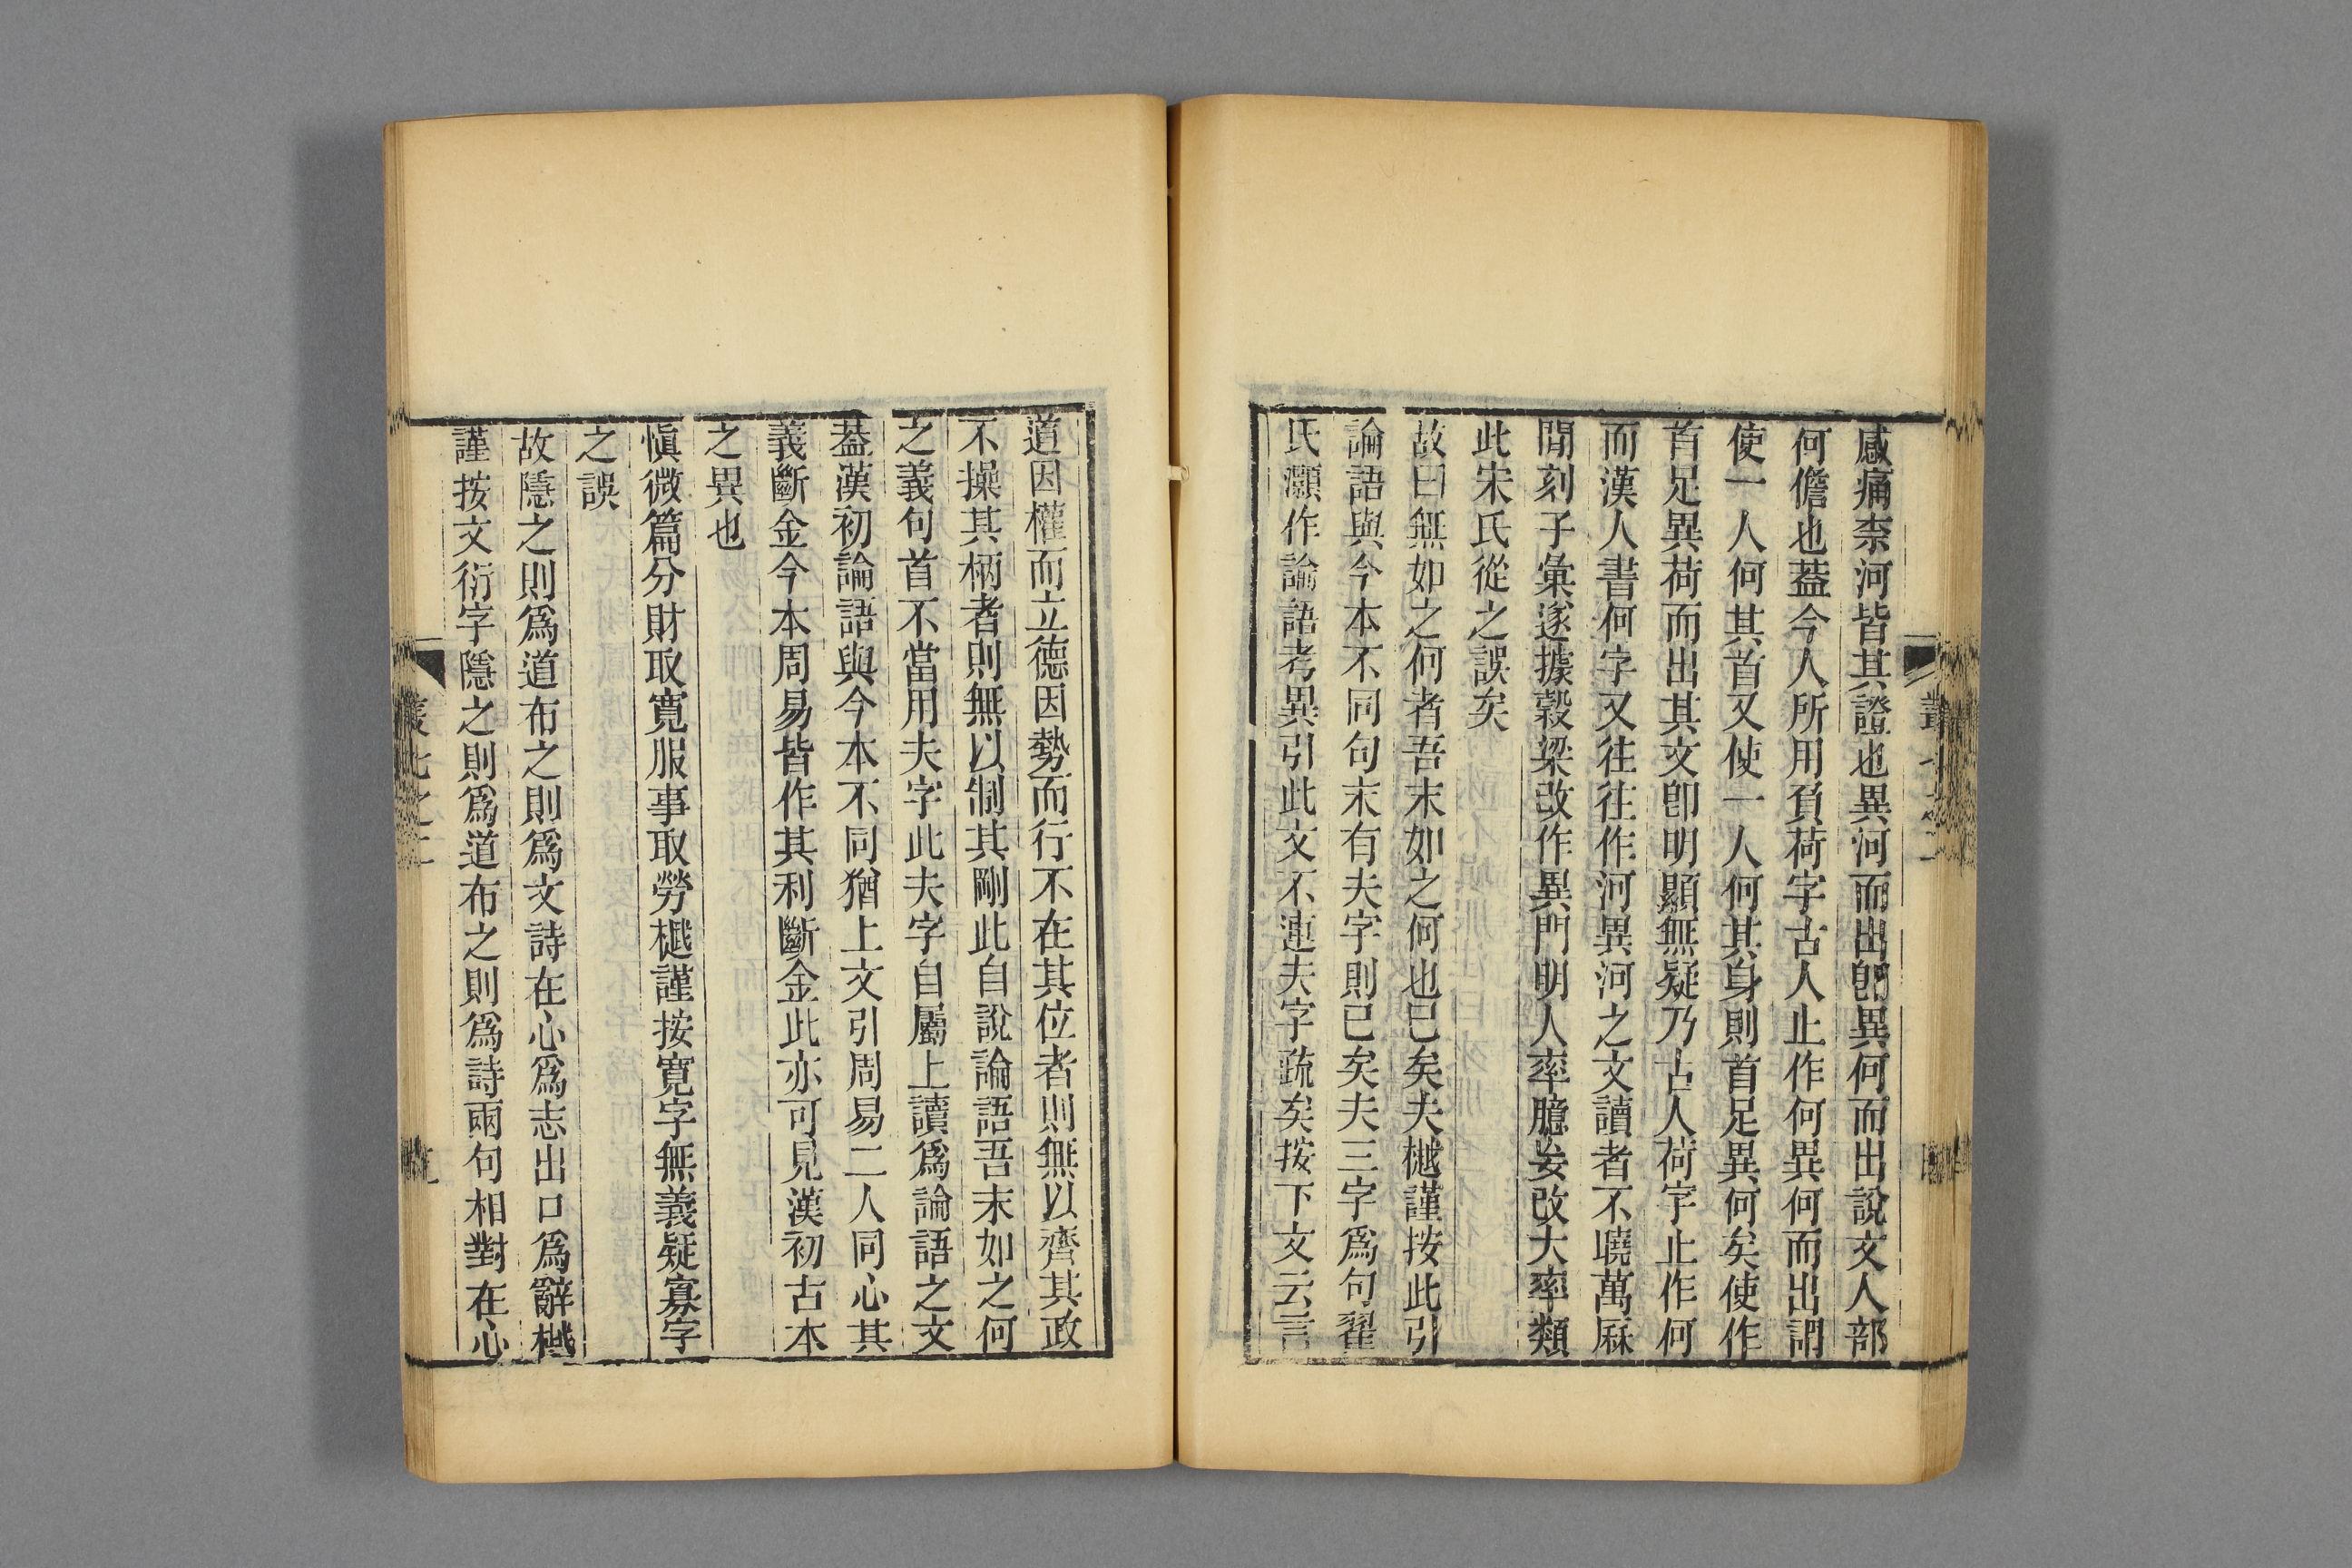 感痛柰河皆其證也異河而出卽異何而出說文人部
何儋也葢今人所用負荷字古人止作何異何而出謂
使一人何其首又使一人何其身則首足異何矣使作
首足異荷而出其文卽明顯無疑乃古人荷字止作何
而漢人書何字又往往作河異河之文讀者不曉萬厤
閒刻子彙遂據榖梁改作異門明人率臆妄改大率類
此宋氏從之誤矣
故曰無如之何者吾末如之何也已矣夫樾謹按此引
論語與今本不同句末有夫字則已矣夫三字爲句翟
氏灝作論語考異引此文不連夫字疏矣按下文云言
道因權而立德因勢而行不在其位者則無以齊其政
不操其柄者則無以制其剛此自說論語吾末如之何
之義句首不當用夫字此夫字自屬上讀爲論語之文
葢漢初論語與今本不同猶上文引周易二人同心其
義斷金今本周易皆作其利斷金此亦可見漢初古本
之異也
愼微篇分財取寬服事取勞樾謹按寬字無義疑寡字
之誤
故隱之則爲道布之則爲文詩在心爲志出口爲辭樾
謹按文衍字隱之則爲道布之則爲詩兩句相對在心